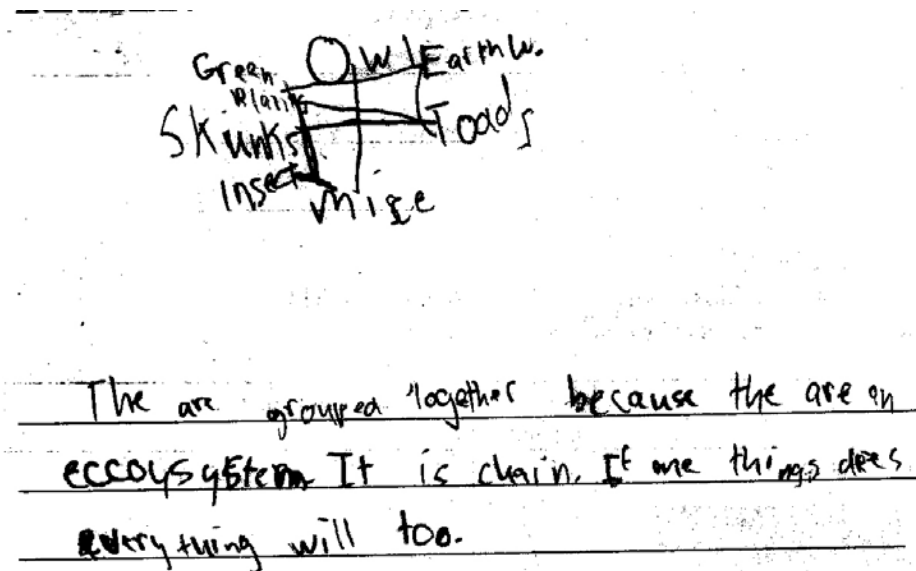 Green Owl Earthw.
Plants
Skunks Toads
Insect
mice
The are grouped together because the are an
eccoysystem It is chain. If one things dies
everything will too.